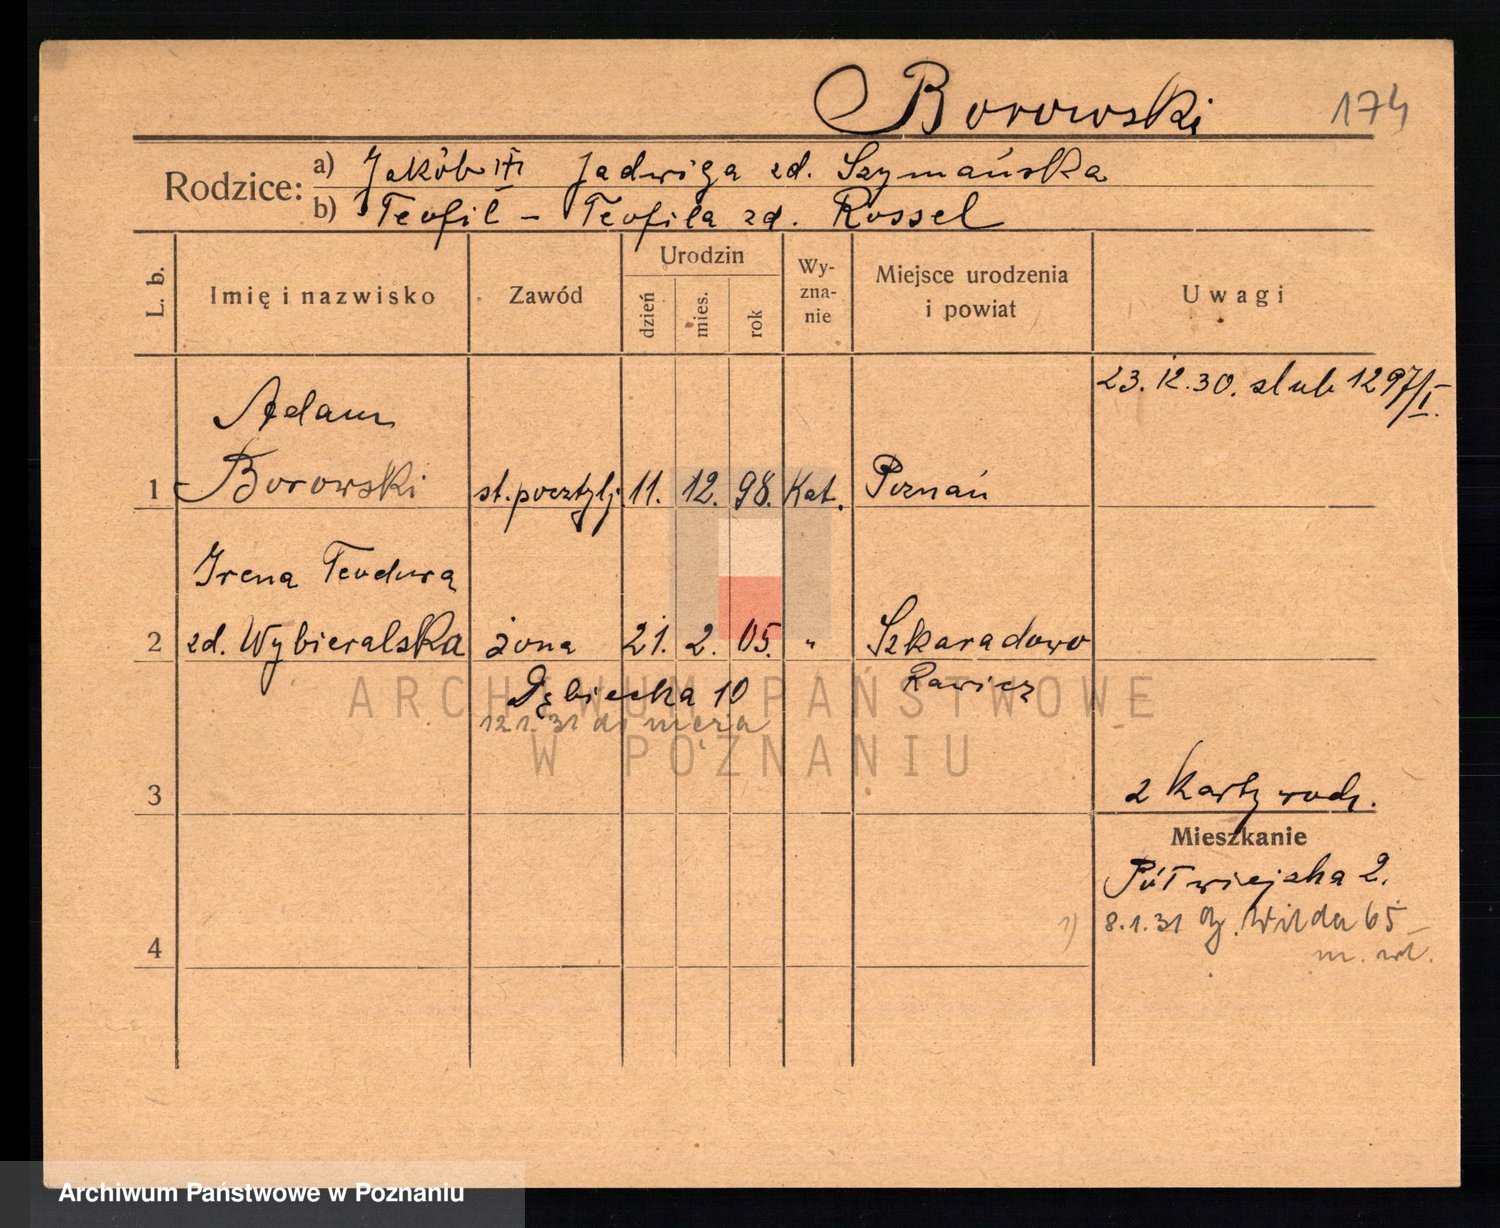 Borowski 174
Rodzice: a) Jakób Jadwiga zd. Szymańska
b) Teofil - Teofila zd. Rossel
L. b. Imię i nazwisko Zawód Urodzin dzień mies. rok Wyznanie Miejsce urodzenia i powiat Uwagi
23. 12. 30. slub 1297/I.
Adam
1 Borowski st. pocztylj. 11. 12. 98. Kat. Poznań
Irena Teodora
2 zd. Wybieralska żona 21. 2. 05. " Szkaradowo
Dębiecka 10 Rawicz
12.1.31 do męża
ARCHIWUM PAŃSTWOWE
W POZNANIU
3 2 Karty rodz.
Mieszkanie
Półwiejska 2.
1) 8.1.31 G. Wilda 65
4 m. wł.
Archiwum Państwowe w Poznaniu